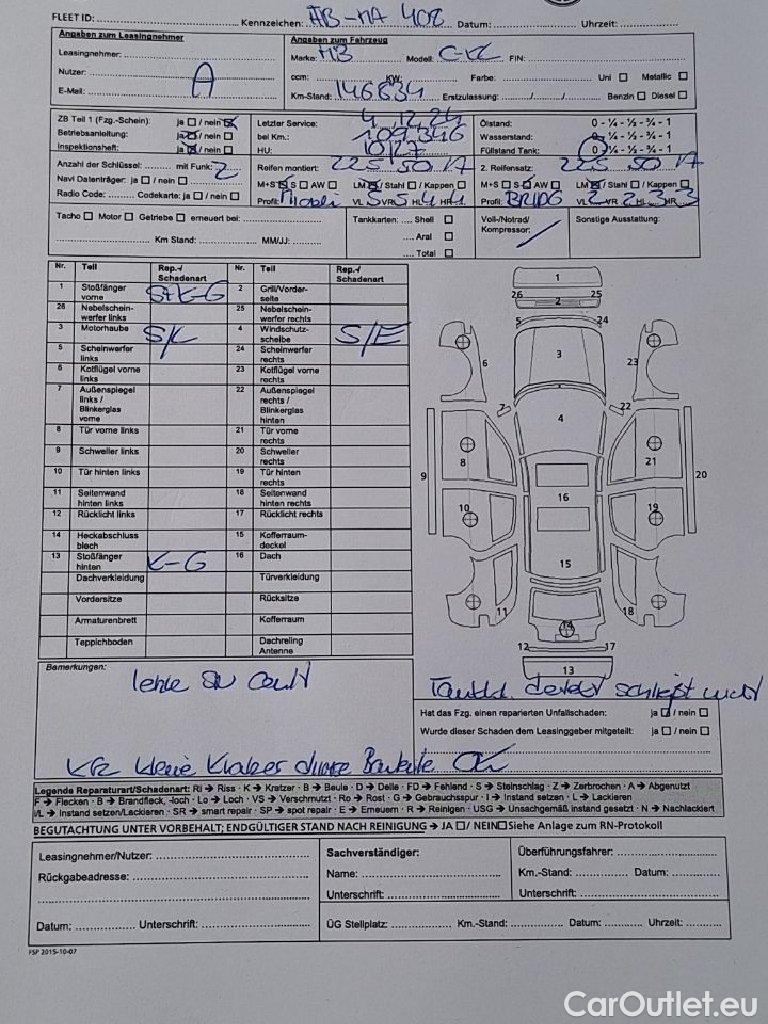 FLEET ID: Kennzeichen: AB-MA 408 Datum: Uhrzeit:
Angaben zum Leasingnehmer
Leasingnehmer:
Nutzer:
E-Mail:
A
Angaben zum Fahrzeug
Marke: MB Modell: FIN:
ccm: KW: Farbe: Uni Metallic
Km-Stand: 146834 Erstzulassung: / / Benzin Diesel
ZB Teil 1 (Fzg.-Schein): ja / nein
Betriebsanleitung: ja / nein
Inspektionsheft: ja / nein
Letzter Service: 4.12.24
bei Km.: 109.346
HU: 10/27
Ölstand: 0 - ¼ - ½ - ¾ - 1
Wasserstand: 0 - ¼ - ½ - ¾ - 1
Füllstand Tank: 0 - ¼ - ½ - ¾ - 1
Anzahl der Schlüssel: mit Funk: 2
Navi Datenträger: ja / nein
Radio Code: Codekarte: ja / nein
Reifen montiert: 225 50 17
M+S S AW LM / Stahl / Kappen
Profil: VL 5 VR 5 HL 4 HR 4
2. Reifensatz: 225 50 17
M+S S AW LM / Stahl / Kappen
Profil: BRIDG VL 2 VR 2 HL 3 HR 3
Tacho Motor Getriebe erneuert bei:
Km Stand: MM/JJ:
Tankkarten: Shell
Aral
Total
Voll-/Notrad/
Kompressor:
Sonstige Ausstattung:
Nr. Teil Rep.-/ Schadenart Nr. Teil Rep.-/ Schadenart
1 Stoßfänger vorne StK-G 2 Grill/Vorderseite
26 Nebelscheinwerfer links 25 Nebelscheinwerfer rechts
3 Motorhaube S/K 4 Windschutzscheibe S/E
5 Scheinwerfer links 24 Scheinwerfer rechts
6 Kotflügel vorne links 23 Kotflügel vorne rechts
7 Außenspiegel links / Blinkerglas vorne 22 Außenspiegel rechts / Blinkerglas hinten
8 Tür vorne links 21 Tür vorne rechts
9 Schweller links 20 Schweller rechts
10 Tür hinten links 19 Tür hinten rechts
11 Seitenwand hinten links 18 Seitenwand hinten rechts
12 Rücklicht links 17 Rücklicht rechts
14 Heckabschluss blech 15 Kofferraum-deckel
13 Stoßfänger hinten K-G 16 Dach
Dachverkleidung Türverkleidung
Vordersitze Rücksitze
Armaturenbrett Kofferraum
Teppichboden Dachreling Antenne
1
26 25
2
5 24
6 3 23
7 22
4
8 21
9 20
16
10 19
15
11 18
14
12 17
13
Bemerkungen:
schließt nicht
Hat das Fzg. einen reparierten Unfallschaden: ja / nein
Wurde dieser Schaden dem Leasinggeber mitgeteilt: ja / nein
Kfz kleine Kratzer OK
Legende Reparaturart/Schadenart: Ri → Riss · K → Kratzer · B → Beule · D → Delle · FD → Fehlend · S → Steinschlag · Z → Zerbrochen · A → Abgenutzt
F → Flecken · B → Brandfleck, -loch · Lo → Loch · VS → Verschmutzt · Ro → Rost · G → Gebrauchsspur · I → Instand setzen · L → Lackieren
I/L → Instand setzen/Lackieren · SR → smart repair · SP → spot repair · E → Erneuern · R → Reinigen · USG → Unsachgemäß instand gesetzt · N → Nachlackiert
BEGUTACHTUNG UNTER VORBEHALT; ENDGÜLTIGER STAND NACH REINIGUNG → JA / NEIN Siehe Anlage zum RN-Protokoll
Leasingnehmer/Nutzer:
Rückgabeadresse:
Datum: Unterschrift:
Sachverständiger:
Name:
Unterschrift:
Überführungsfahrer:
Km.-Stand: Datum:
Unterschrift:
ÜG Stellplatz: Km.-Stand: Datum: Uhrzeit:
FSP 2015-10-07
CarOutlet.eu